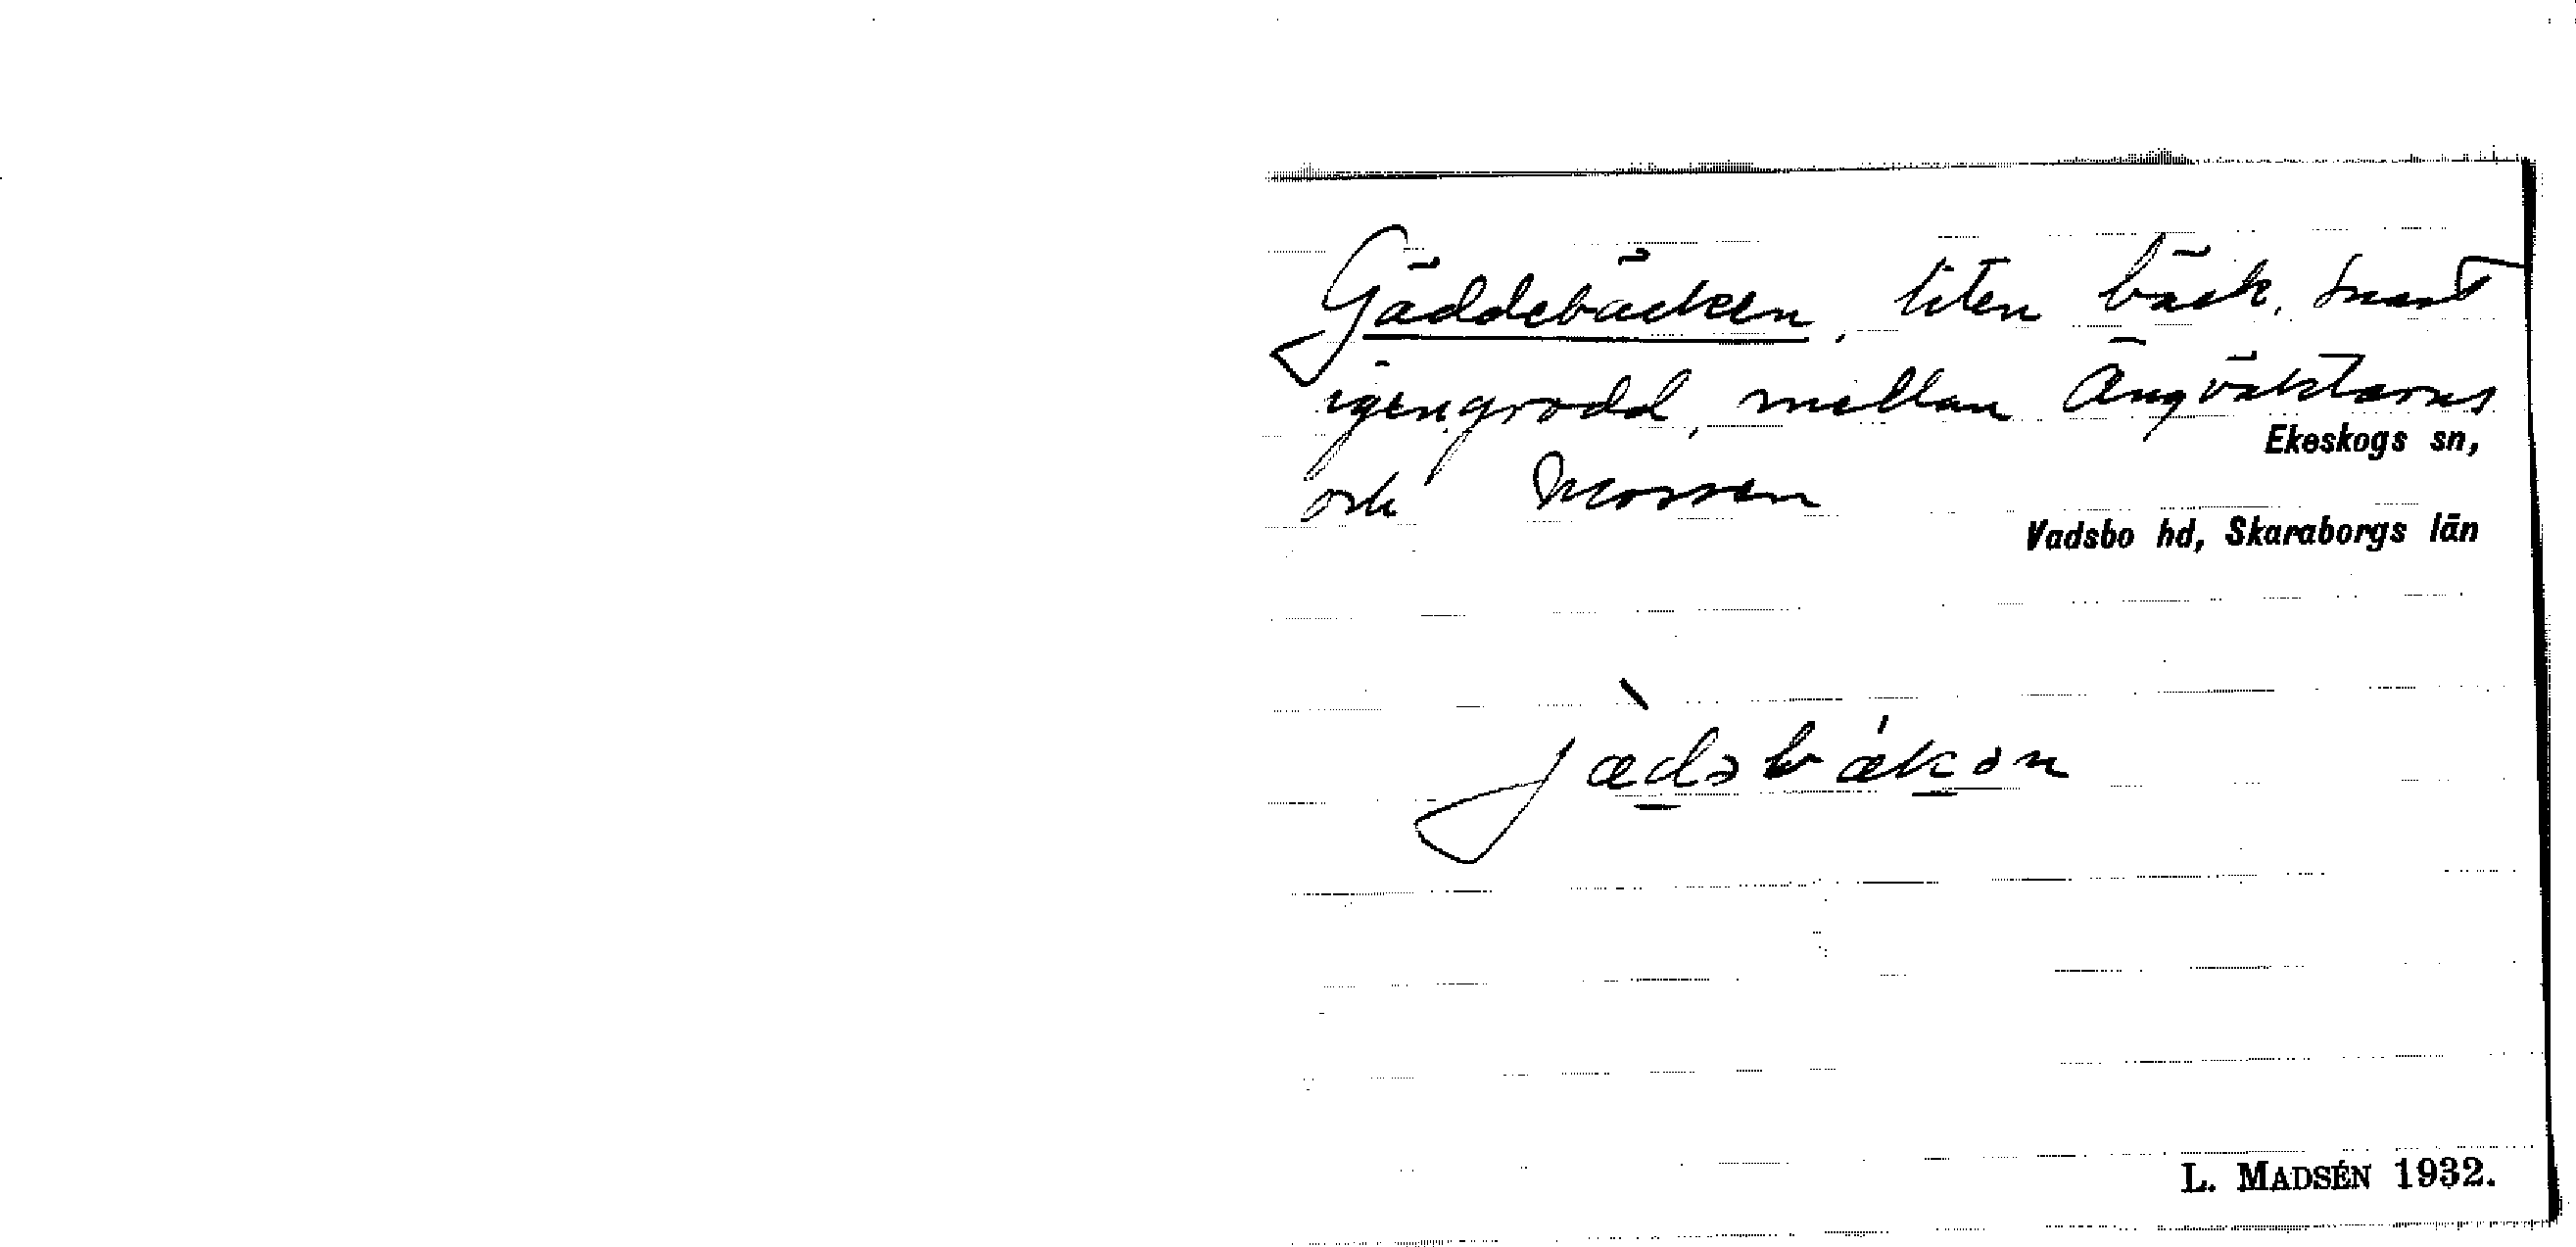 Gäddebäcken, liten bäck, snart
igengrodd, mellan Ängväktarns
Ekeskogs sn,
och Mossen
Vadsbo hd, Skaraborgs län
jædəbækən
L. MADSÉN 1932.